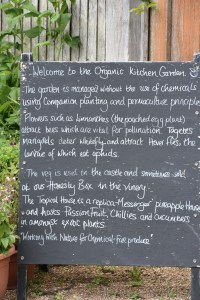 Welcome to the Organic Kitchen Garden
The garden is managed without the use of chemicals
using companion planting and permaculture principles
Flowers such as Limnanthes (the poached egg plant)
attract bees which are vital for pollination. Tagetes
marigolds deter whitefly and attract Hover flies the
larvae of which eat aphids.
The veg is used in the castle and sometimes sold
at our Honesty Box in the vinery.
The Tropical House is a replica "Messenger" pineapple House
and hosts Passion Fruit, Chillies and cucumbers
in amongst exotic plants.
"Working with Nature for Chemical-Free produce"